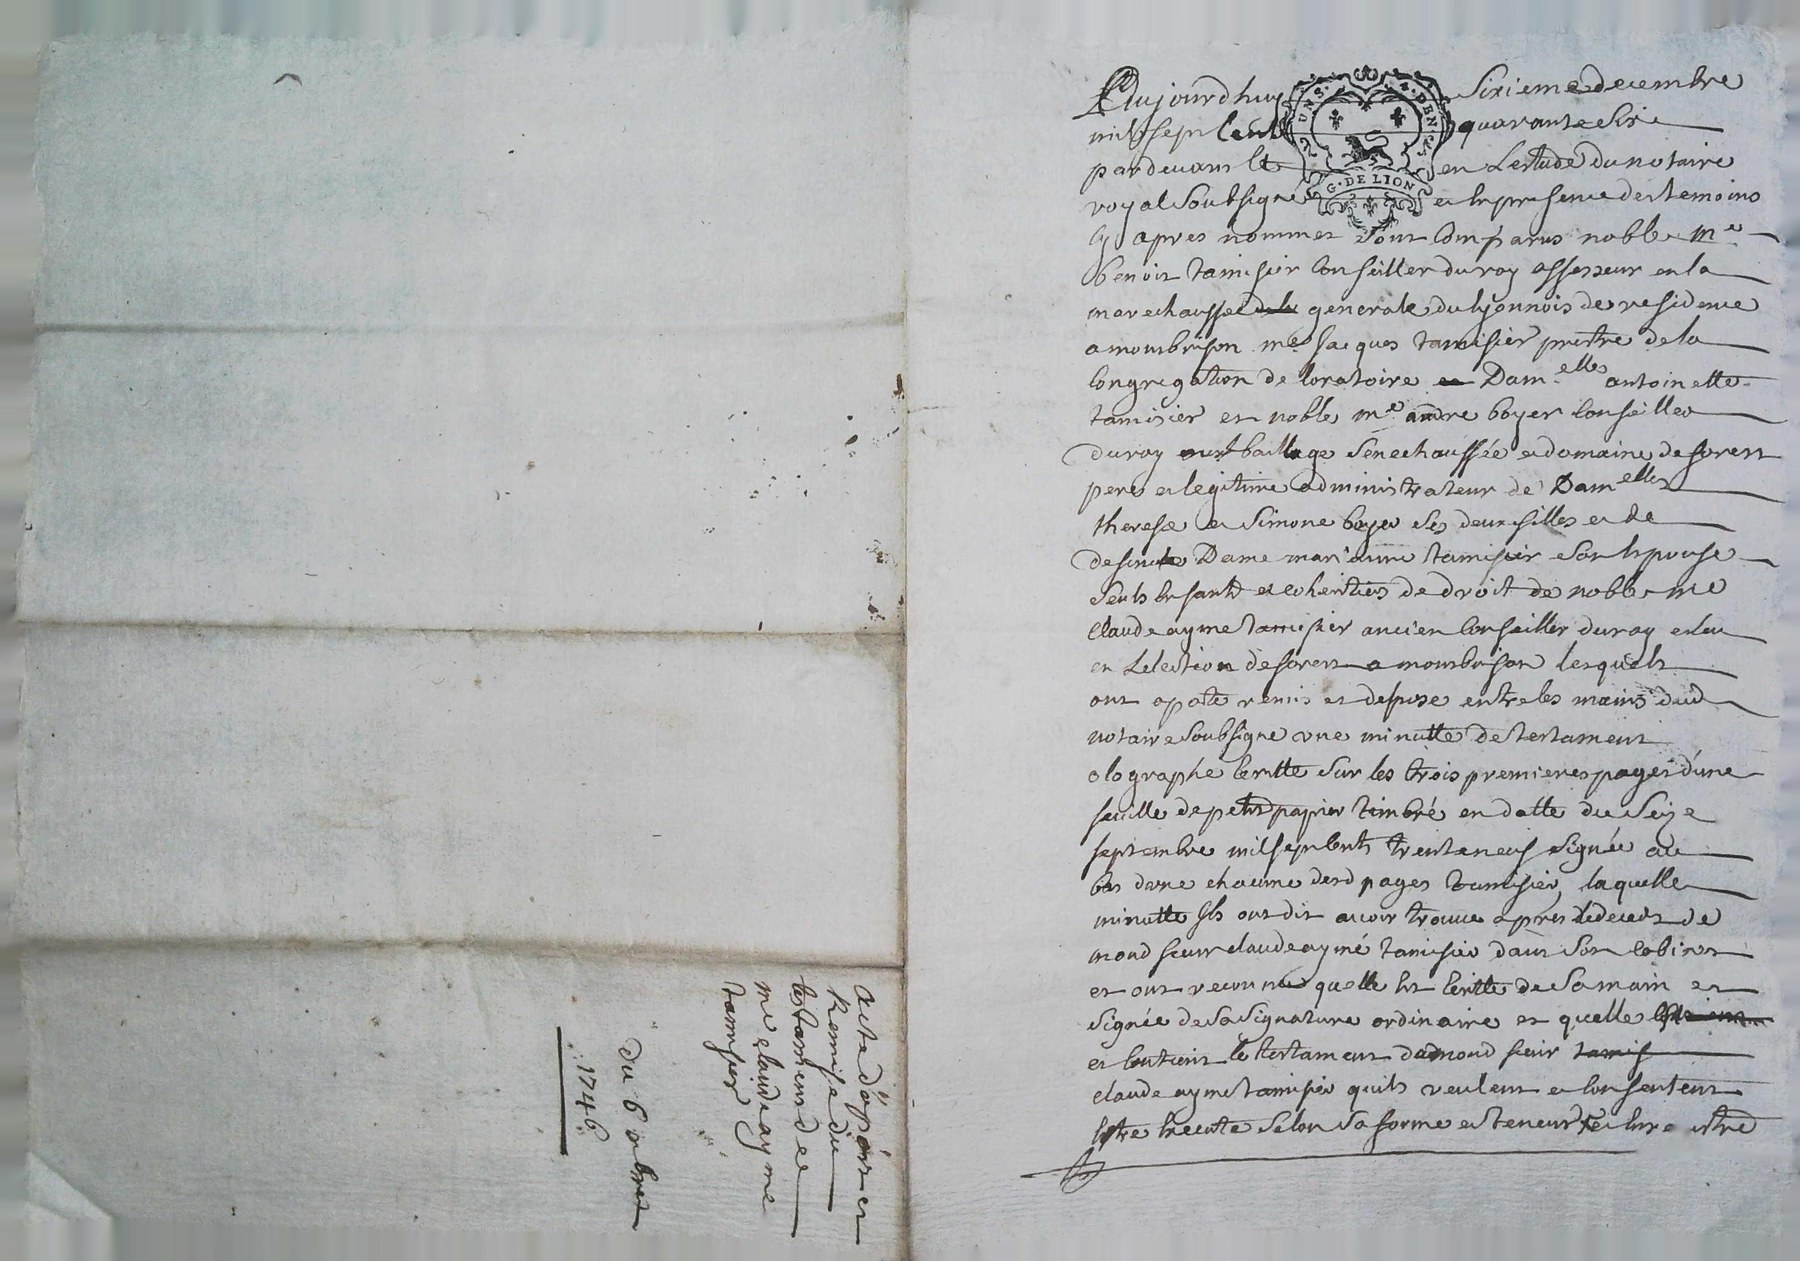 Aujourdhuy sixieme decembre
mil sept cent quarante six
pardevant et en Lestude du notaire
royal soubsigné et en presence des temoins
cy apres nommez sont comparus noble me
benoit tamisier conseiller du roy assesseur en la
marechaussee generale du lyonnois de residence
a monbrison me Jacques tamisier prestre de la
congregation de loratoire Damelles antoinette
tamisier et noble me andre boyer conseiller
du roy baillage senechaussée et domaine de forest
pere et legitime administrateur de Damelles
therese et simone boyer ses deux filles et de
defunte Dame marianne tamisier son epouse
seuls enfants et coheritiers de droit de noble me
claude ayme tamisier ancien conseiller du roy esleu
en Lelection de forest a monbrison lesquels
ont aporte remis et depose entre les mains dud
notaire soubsigne une minutte de testament
olographe ecritte sur les trois premieres pages d'une
feuille de petit papier timbré en datte du seize
septembre mil sept cents trente neuf signée au
bas dune chacune desd pages tamisier, laquelle
minutte ils ont dit avoir trouve apres le deceds de
mond sieur claude aymé tamisier dans son cabinet
et ont reconnue quelle est ecritte de sa main et
signée de sa signature ordinaire et quelle
et contient le testament dudmond sieur tamis
claude ayme tamisier quils veulent et consentent
estre execute selon sa forme et teneur et estre
acte d'aport et
Remise du
testament de
me claude ayme
tamisier
Du 6 xbre
1746
2 DEN.
G. DE LION